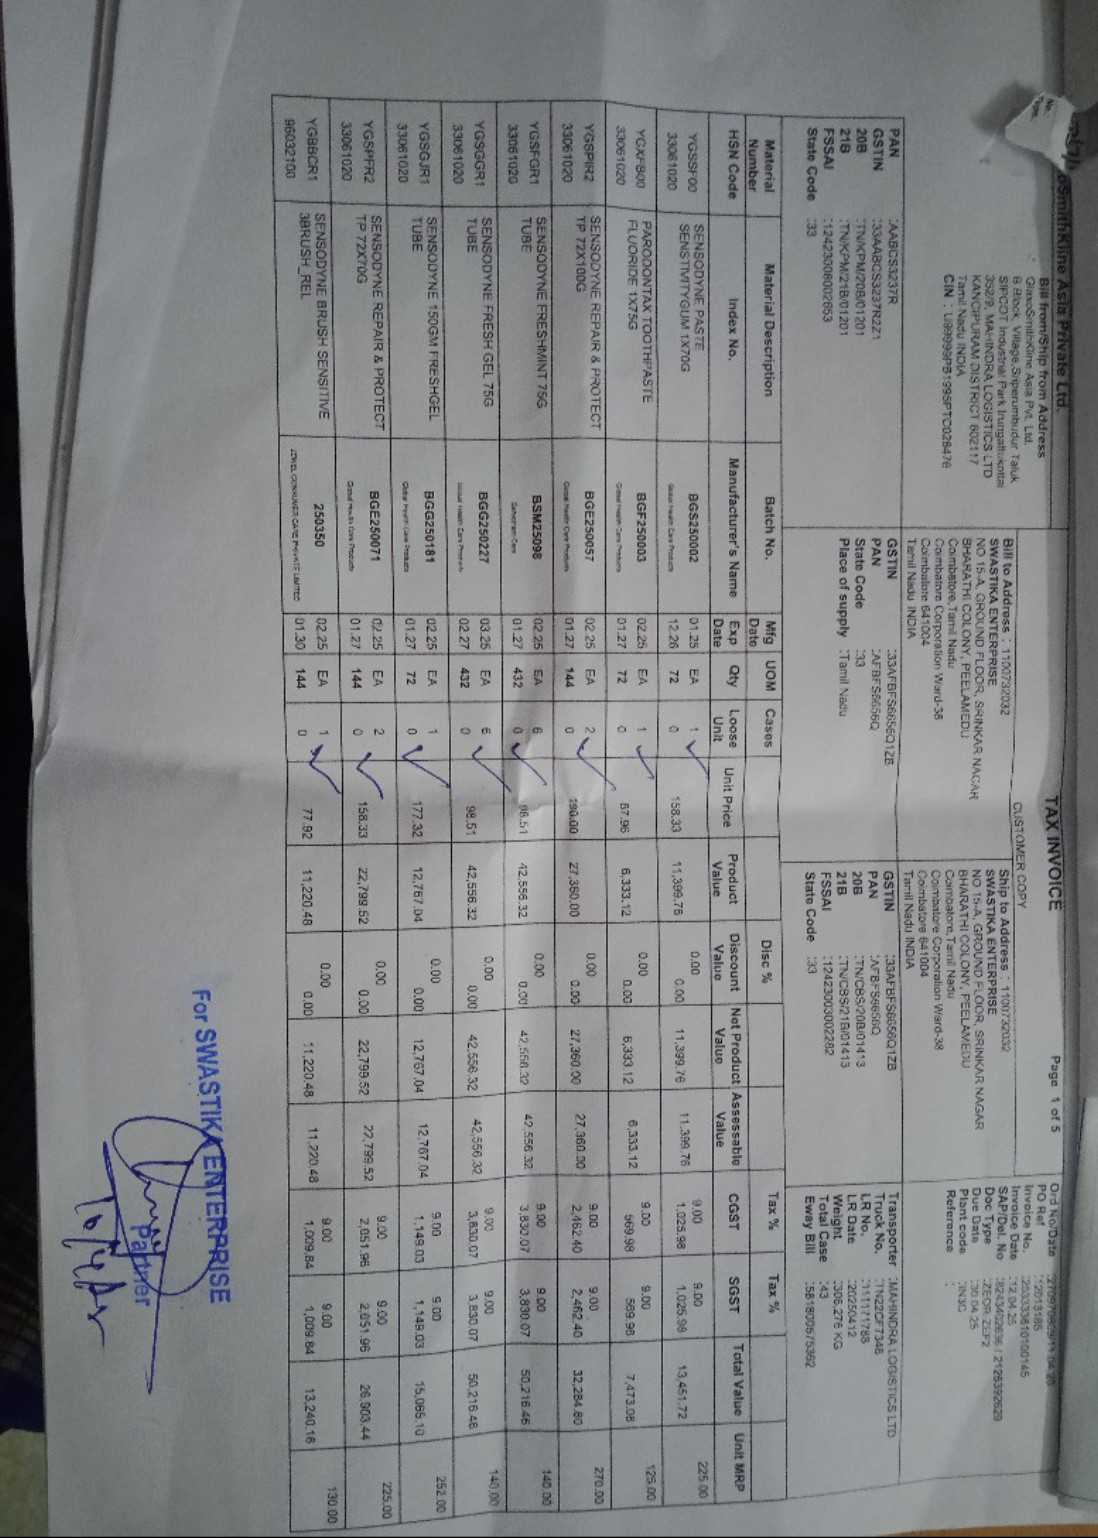 SmithKline Asia Private Ltd.
TAX INVOICE
Page 1 of 5
Bill from/Ship from Address
GlaxoSmithKline Asia Pvt. Ltd.
B Block, Village,Sriperumbudur Taluk
SIPCOT Industrial Park Irungattukottai
MAHINDRA LOGISTICS LTD
KANCIPURAM DISTRICT 602117
Tamil Nadu INDIA
CUSTOMER COPY
Bill to Address : 1100732032
SWASTIKA ENTERPRISE
NO 15-A, GROUND FLOOR, SRINKAR NAGAR
BHARATHI COLONY, PEELAMEDU
Coimbatore,Tamil Nadu
Coimbatore Corporation Ward-38
Coimbatore 641004
Tamil Nadu INDIA
Ship to Address : 1100732032
SWASTIKA ENTERPRISE
NO 15-A, GROUND FLOOR, SRINKAR NAGAR
BHARATHI COLONY, PEELAMEDU
Coimbatore,Tamil Nadu
Coimbatore Corporation Ward-38
Coimbatore 641004
Tamil Nadu INDIA
Ord No/Date
PO Ref
Invoice No. :
Invoice Date :12.04.25
SAP/Del. No
Doc Type :ZEOR-ZEF2
Due Date :30.04.25
Plant code :IN3C
Reference :
PAN :AABCS3237R
GSTIN :33AABCS3237R2Z1
20B :TN/KPM/20B/01201
21B :TN/KPM/21B/01201
FSSAI :12423008002653
State Code :33
GSTIN :33AFBFS6656Q1ZB
PAN :AFBFS6656Q
State Code :33
Place of supply :Tamil Nadu
GSTIN :33AFBFS6656Q1ZB
PAN :AFBFS6656Q
20B :TN/CBS/20B/01413
21B :TN/CBS/21B/01413
FSSAI :12423003002282
State Code :33
Transporter :MAHINDRA LOGISTICS LTD
Truck No. :TN22CF7348
LR No. :111171788
LR Date :20250412
Weight :306.276 KG
Total Case :43
Eway Bill :581800575362
Material Material Description Batch No. Mfg UOM Cases Disc % Tax % Tax %
Number Date
HSN Code Index No. Manufacturer's Name Exp Qty Loose Unit Price Product Discount Net Product Assessable CGST SGST Total Value Unit MRP
Date Unit Value Value Value Value
YGSSF00 SENSODYNE PASTE BGS250002 01.25 EA 1 0.00 9.00 9.00
33061020 SENSTIVITYGUM 1X70G Global Health Care Products 12.26 72 0 158.33 11,399.76 0.00 11,399.76 11,399.76 1,025.98 1,025.98 13,451.72 225.00
YGXFB00 PARODONTAX TOOTHPASTE BGF250003 02.25 EA 1 0.00 9.00 9.00
33061020 FLUORIDE 1X75G Global Health Care Products 01.27 72 0 87.96 6,333.12 0.00 6,333.12 6,333.12 569.98 569.98 7,473.08 125.00
YGSPIR2 SENSODYNE REPAIR & PROTECT BGE250057 02.25 EA 2 0.00 9.00 9.00
33061020 TP 72X100G Global Health Care Products 01.27 144 0 190.00 27,360.00 0.00 27,360.00 27,360.00 2,462.40 2,462.40 32,284.80 270.00
YGSFGR1 SENSODYNE FRESHMINT 75G BSM25098 02.25 EA 6 0.00 9.00 9.00
33061020 TUBE 01.27 432 0 98.51 42,556.32 0.00 42,556.32 42,556.32 3,830.07 3,830.07 50,216.46 140.00
YGSGGR1 SENSODYNE FRESH GEL 75G BGG250227 03.25 EA 6 0.00 9.00 9.00
33061020 TUBE Global Health Care Products 02.27 432 0 98.51 42,556.32 0.00 42,556.32 42,556.32 3,830.07 3,830.07 50,216.46 140.00
YGSGJR1 SENSODYNE 150GM FRESHGEL BGG250181 02.25 EA 1 0.00 9.00 9.00
33061020 TUBE Global Health Care Products 01.27 72 0 177.32 12,767.04 0.00 12,767.04 12,767.04 1,149.03 1,149.03 15,065.10 252.00
YGSPFR2 SENSODYNE REPAIR & PROTECT BGE250071 02.25 EA 2 0.00 9.00 9.00
33061020 TP 72X70G Global Health Care Products 01.27 144 0 158.33 22,799.52 0.00 22,799.52 22,799.52 2,051.96 2,051.96 26,903.44 225.00
YGBBCR1 SENSODYNE BRUSH SENSITIVE 250350 02.25 EA 1 0.00 9.00 9.00
96032100 3BRUSH_REL CONSUMER CARE PRIVATE LIMITED 01.30 144 0 77.92 11,220.48 0.00 11,220.48 11,220.48 1,009.84 1,009.84 13,240.16 130.00
For SWASTIKA ENTERPRISE
Partner